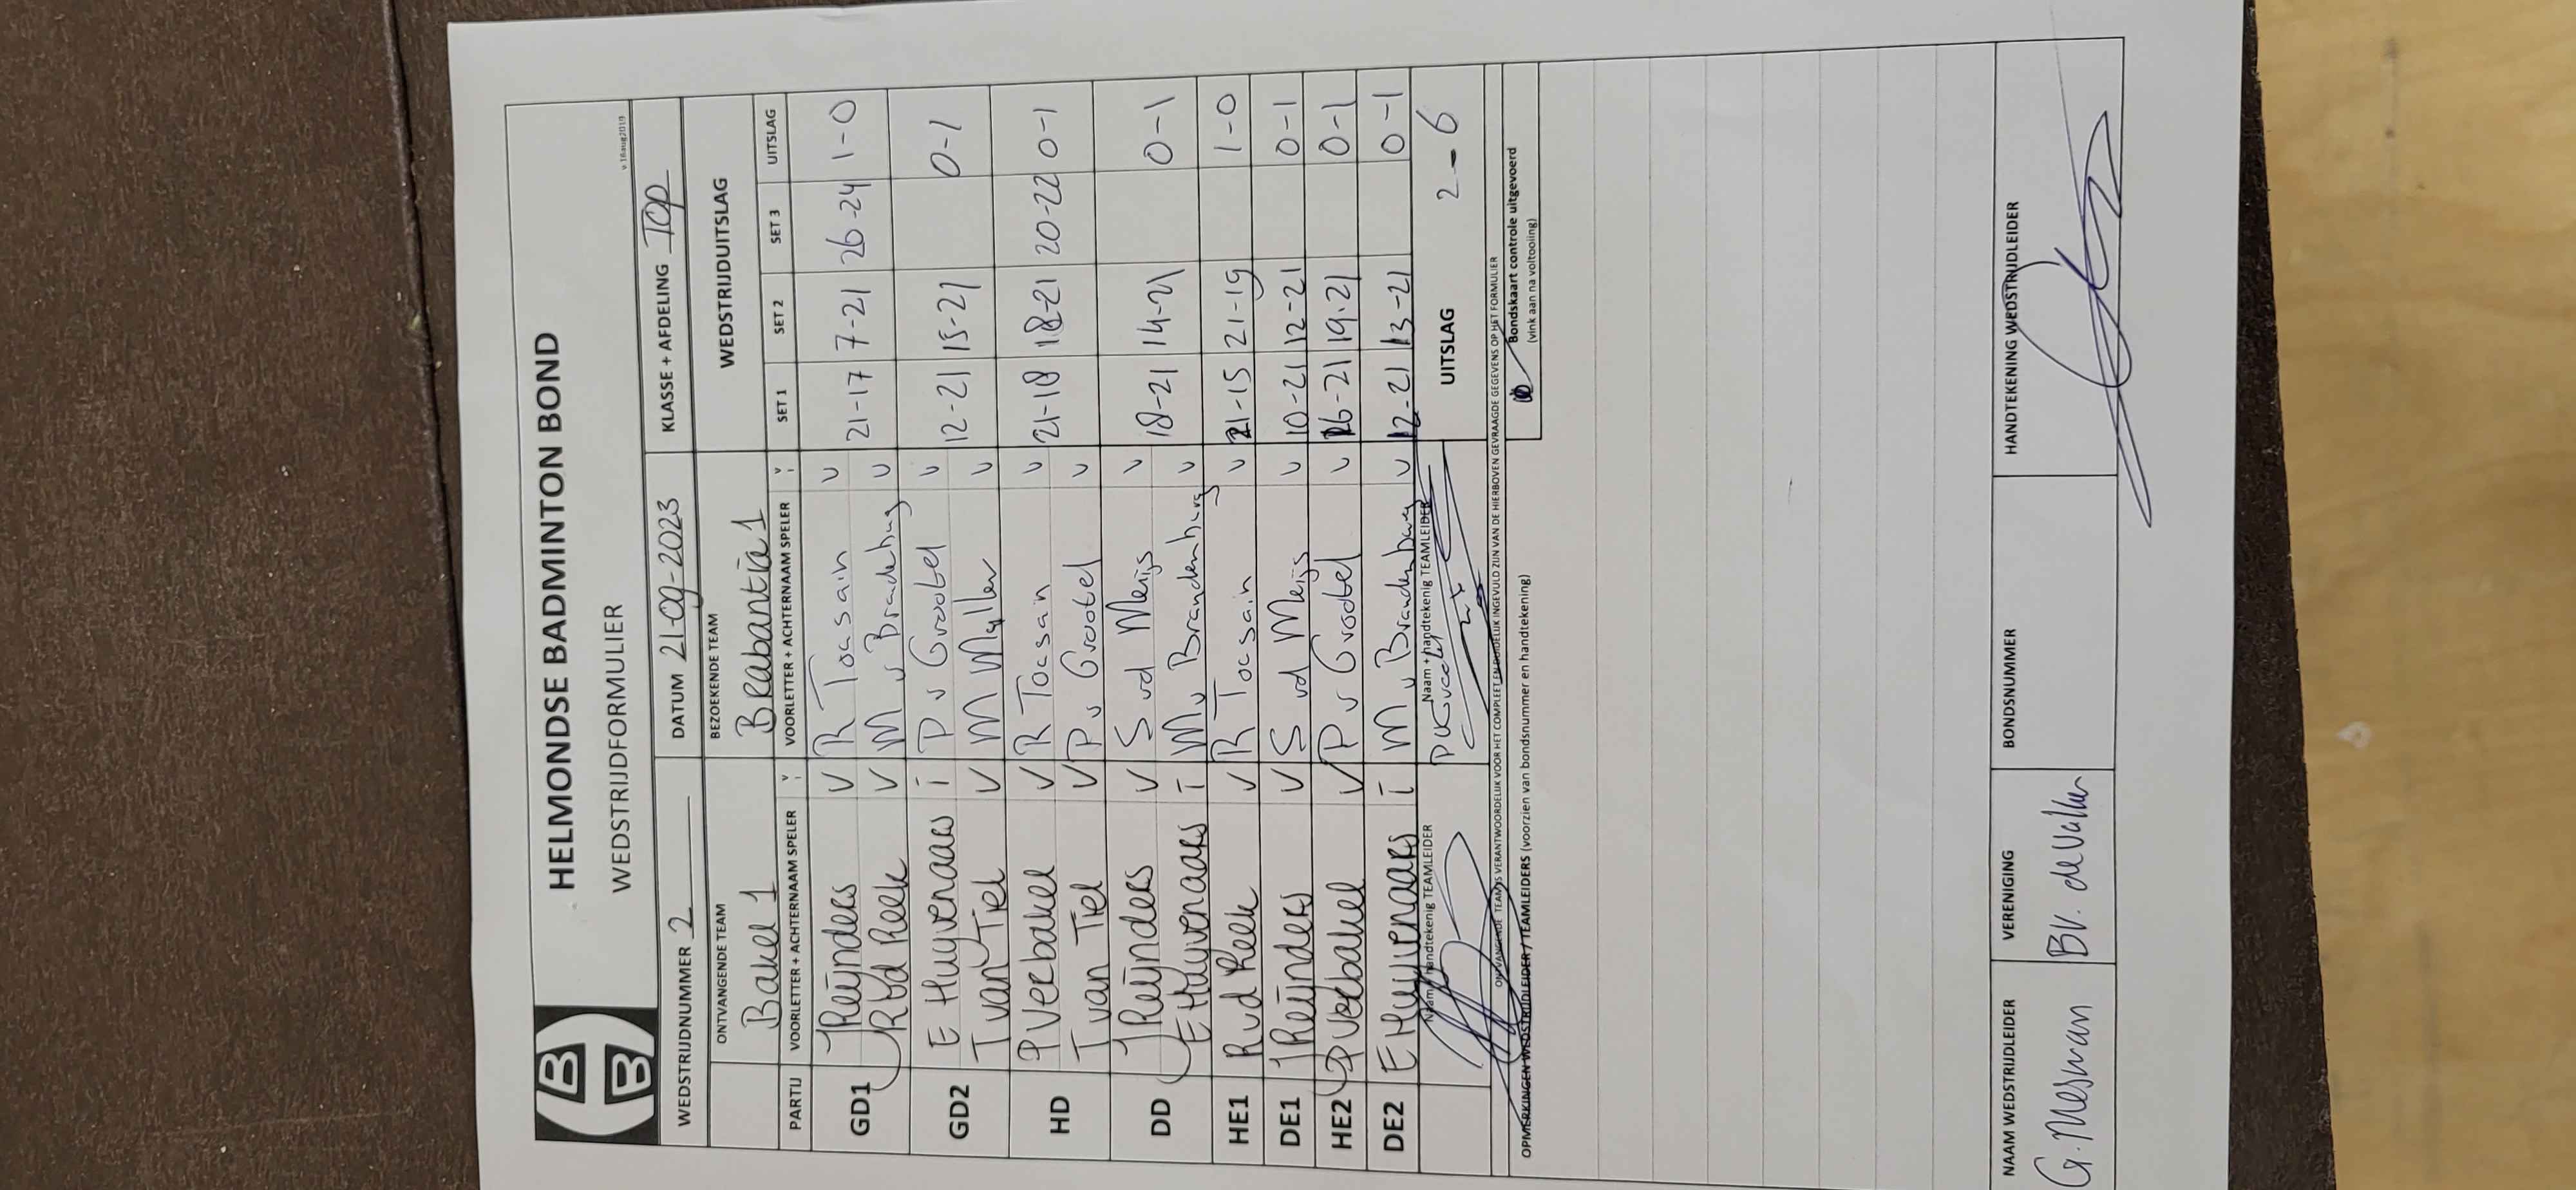 HELMONDSE BADMINTON BOND
WEDSTRIJDFORMULIER
v.16aug2019
WEDSTRIJDNUMMER 2 DATUM 21-09-2023 KLASSE + AFDELING TOP
ONTVANGENDE TEAM BEZOEKENDE TEAM WEDSTRIJDUITSLAG
Bakel 1 Brabantia 1
PARTIJ VOORLETTER + ACHTERNAAM SPELER VOORLETTER + ACHTERNAAM SPELER SET 1 SET 2 SET 3 UITSLAG
GD1 J Reijnders V R Toesain V 21-17 7-21 26-24 1-0
R vd Reek V M v Brandenburg V
GD2 E Huijvenaars I P v Grootel V 12-21 15-21 0-1
T van Tiel V M Muller V
HD P Verbakel V R Toesain V 21-18 18-21 20-22 0-1
T van Tiel V P v Grootel V
DD J Reijnders V S vd Meijs V 18-21 14-21 0-1
E Huijvenaars I M v Brandenburg V
HE1 R vd Reek V R Toesain V 21-15 21-19 1-0
DE1 J Reijnders V S vd Meijs V 10-21 12-21 0-1
HE2 P Verbakel V P v Grootel V 16-21 19-21 0-1
DE2 E Huijvenaars I M v Brandenburg V 12-21 13-21 0-1
Naam + handtekenig TEAMLEIDER Naam + handtekenig TEAMLEIDER UITSLAG 2-6
ONTVANGENDE TEAM IS VERANTWOORDELIJK VOOR HET COMPLEET EN DUIDELIJK INGEVULD ZIJN VAN DE HIERBOVEN GEVRAAGDE GEGEVENS OP HET FORMULIER
OPMERKINGEN WEDSTRIJDLEIDER / TEAMLEIDERS (voorzien van bondsnummer en handtekening)
Bondskaart controle uitgevoerd
(vink aan na voltooiing)
NAAM WEDSTRIJDLEIDER VERENIGING BONDSNUMMER HANDTEKENING WEDSTRIJDLEIDER
G. Mesman BV. de Valker